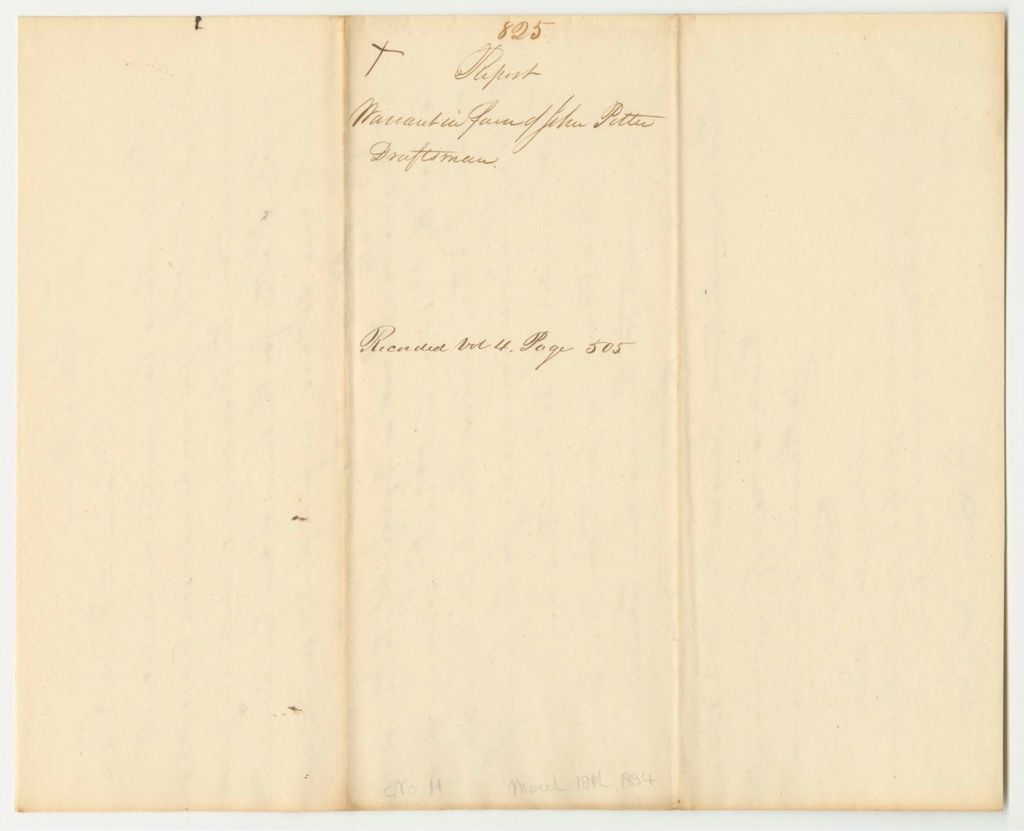 825
Report
Warrant in favor of John Potter
Draftsman.
Recorded Vol 4. Page 505
No 11 March 18th 1834